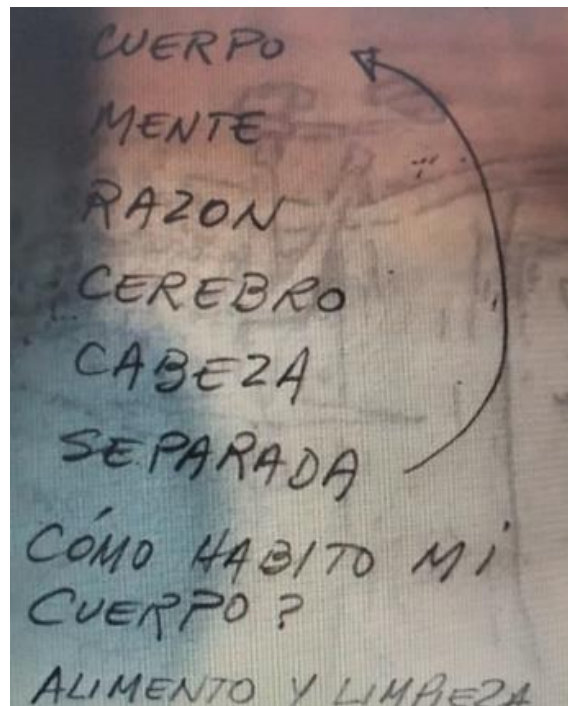 CUERPO
MENTE
RAZON
CEREBRO
CABEZA
SEPARADA
CÓMO HABITO MI
CUERPO?
ALIMENTO Y LIMPIEZA